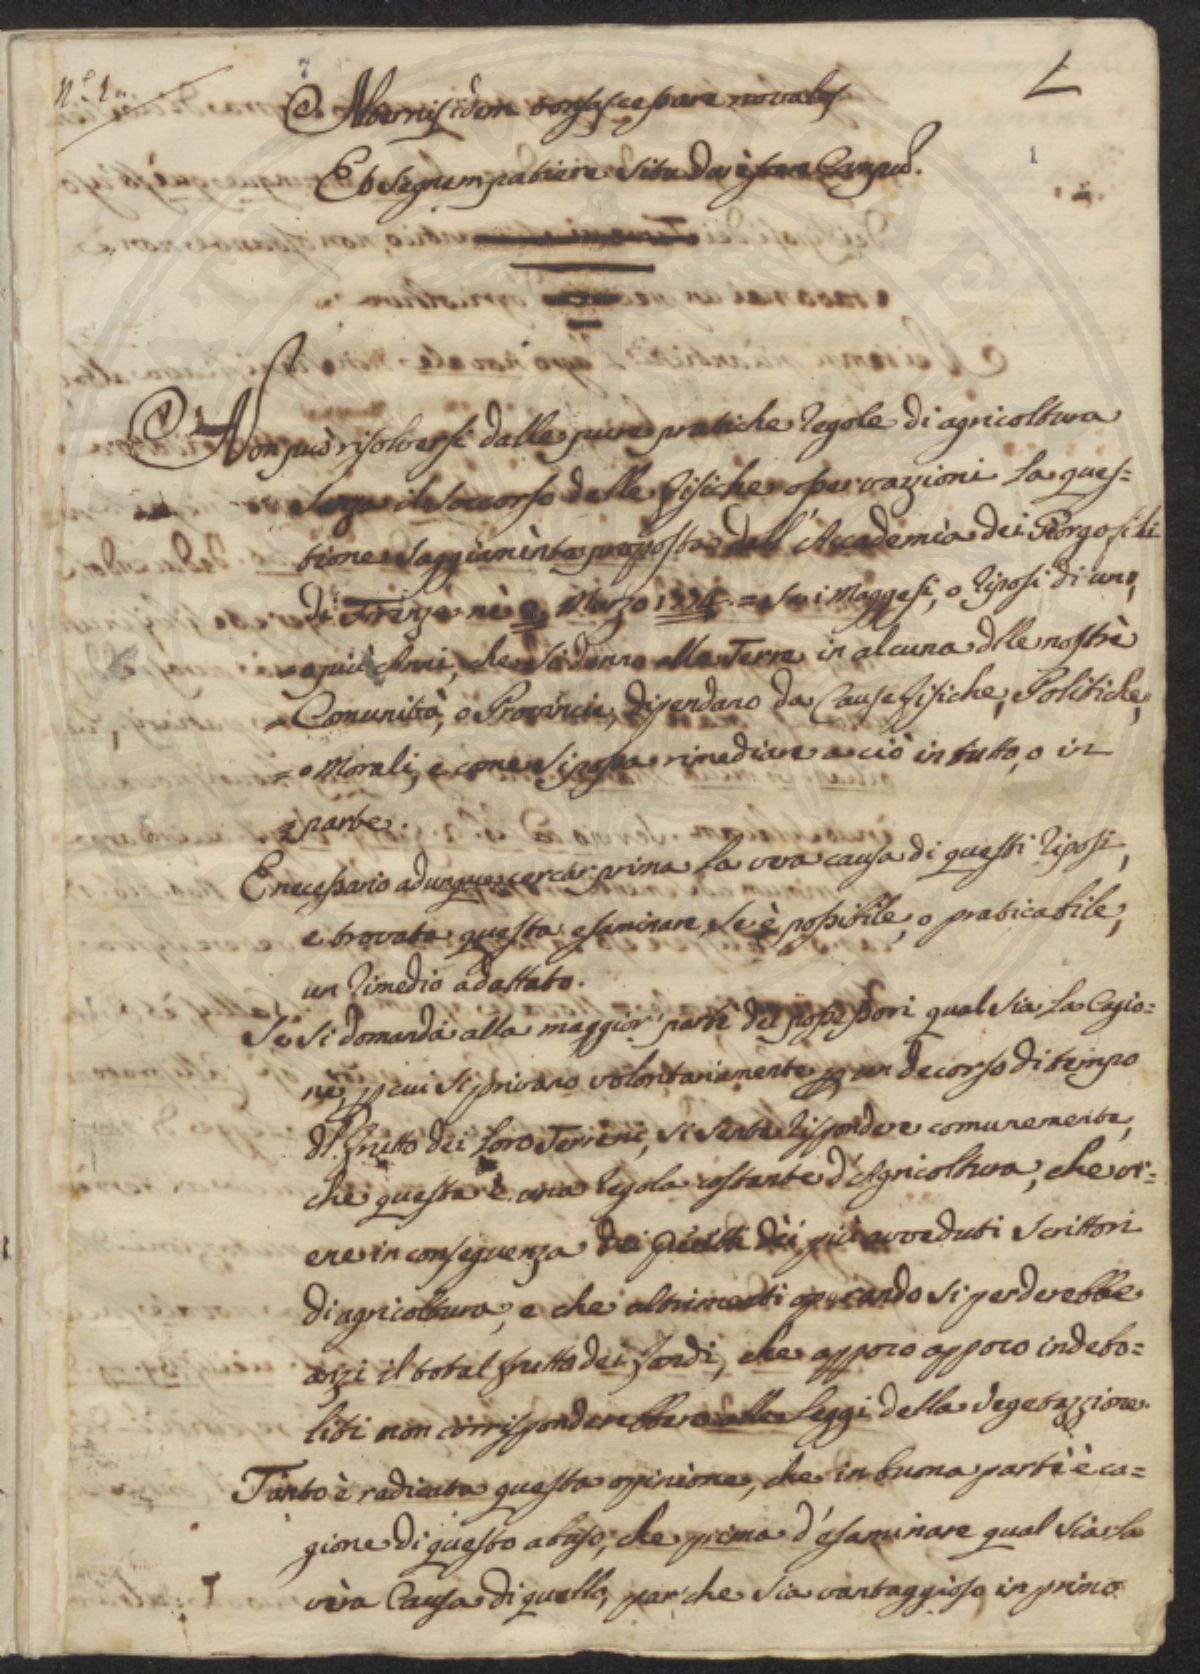 N.° 1.
7
L
Alternis idem tonsas cessare novales
1
Et segnem patiere situ durescere Campum.
Non può risolversi dalle pure pratiche regole di agricoltura
senza il soccorso delle fisiche osservazioni la ques=
tione saggiamente proposta dall' Accademia dei Georgofili
di Firenze ne' 2. Marzo 1774. = Se i Maggesi, o riposi di uno,
= o più Anni, che si danno alla Terra in alcuna delle nostre
= Comunità, o Provincie, dipendano da Cause fisiche, Politiche,
= o Morali, e come si possa rimediare a ciò in tutto, o in
= parte.
E necessario adunque cercar prima la vera causa di questi riposi,
e trovata questa esaminare, se è possibile, o praticabile,
un rimedio adattato.
Se si domanda alla maggior parte dei possessori qual sia la Cagio=
ne, p cui si privano volontariamente p un decorso di tempo
del frutto dei loro Terreni, si sente rispondere comunemente,
che questa è una regola costante d'Agricoltura, che vi=
ene in conseguenza dei più avveduti scrittori
di agricoltura, e che altrimenti operando si perderebbe
anzi il total frutto dei fondi, che appoco appoco indebo=
liti non corrisponderebbero alle leggi della vegetazzione.
Tanto è radicata questa opinione, che in buona parte è ca=
gione di questo abuso, che prima d'esaminare qual sia la
vera Causa di quello, par che sia vantaggioso in primo